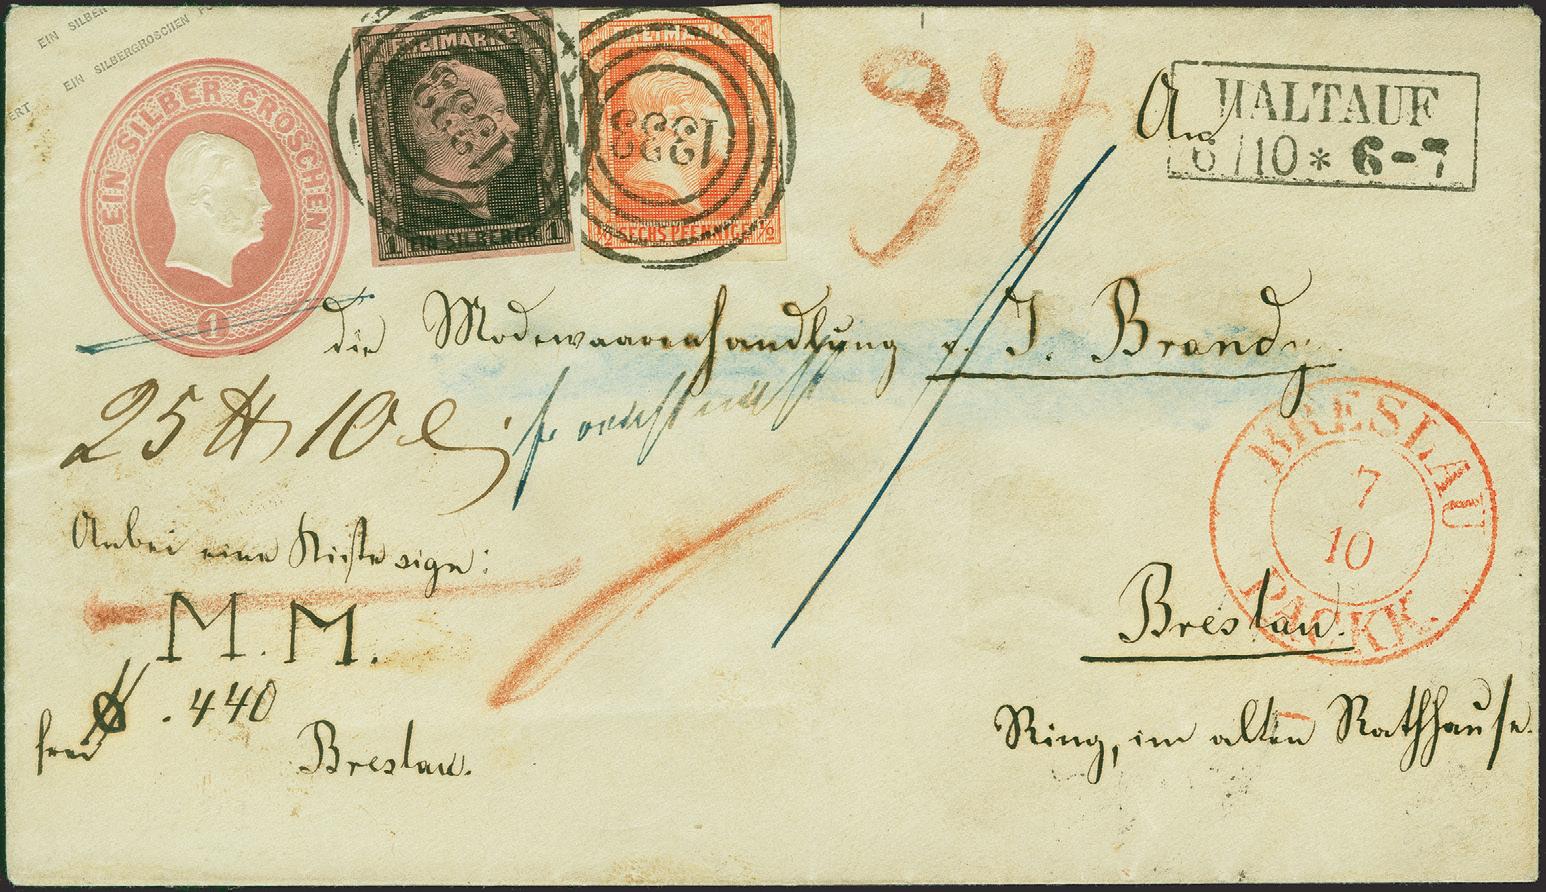 EIN SILBER
EIN SILBERGROSCHEN
ERT
EIN SILBER GROSCHEN
1
FREIMARKE
1333
1 EIN SILBERGR. 1
FREIMARKE
1333
½ SECHS PFENNIGE ½
34
An
MALTAUF
6/10 * 6-7
die Modewaarenhandlung v. J. Brandy
25 10
Anbei eine Kiste sign:
M. M.
. 440
frei
Breslau.
BRESLAU
7
10
PACKK.
Breslau.
Ring, im alten Rathhause.